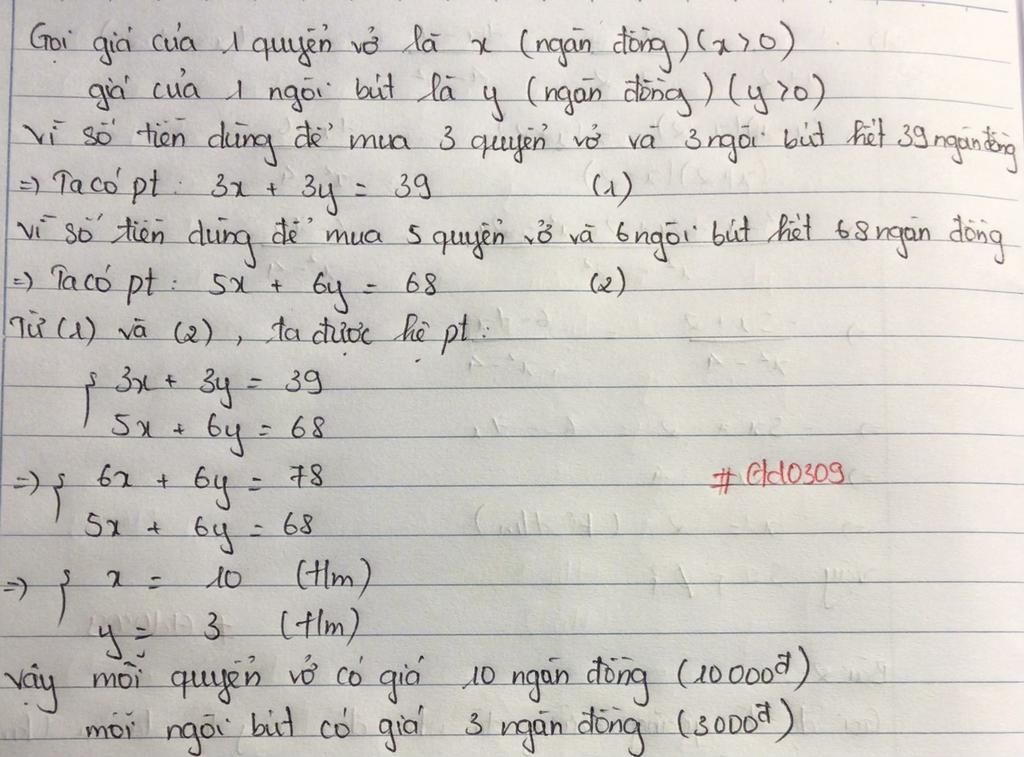 Gọi giá của 1 quyển vở là x (ngàn đồng) (x>0)
giá của 1 ngòi bút là y (ngàn đồng) (y>0)
Vì số tiền dùng để mua 3 quyển vở và 3 ngòi bút hết 39 ngàn đồng
=> Ta có pt: 3x + 3y = 39 (1)
Vì số tiền dùng để mua 5 quyển vở và 6 ngòi bút hết 68 ngàn đồng
=> Ta có pt: 5x + 6y = 68 (2)
Từ (1) và (2), ta được hệ pt:
{ 3x + 3y = 39
5x + 6y = 68
=> { 6x + 6y = 78
#
5x + 6y = 68
=> { x = 10 (tlm)
y = 3 (tlm)
Vậy mỗi quyển vở có giá 10 ngàn đồng (10000đ)
mỗi ngòi bút có giá 3 ngàn đồng (3000đ)